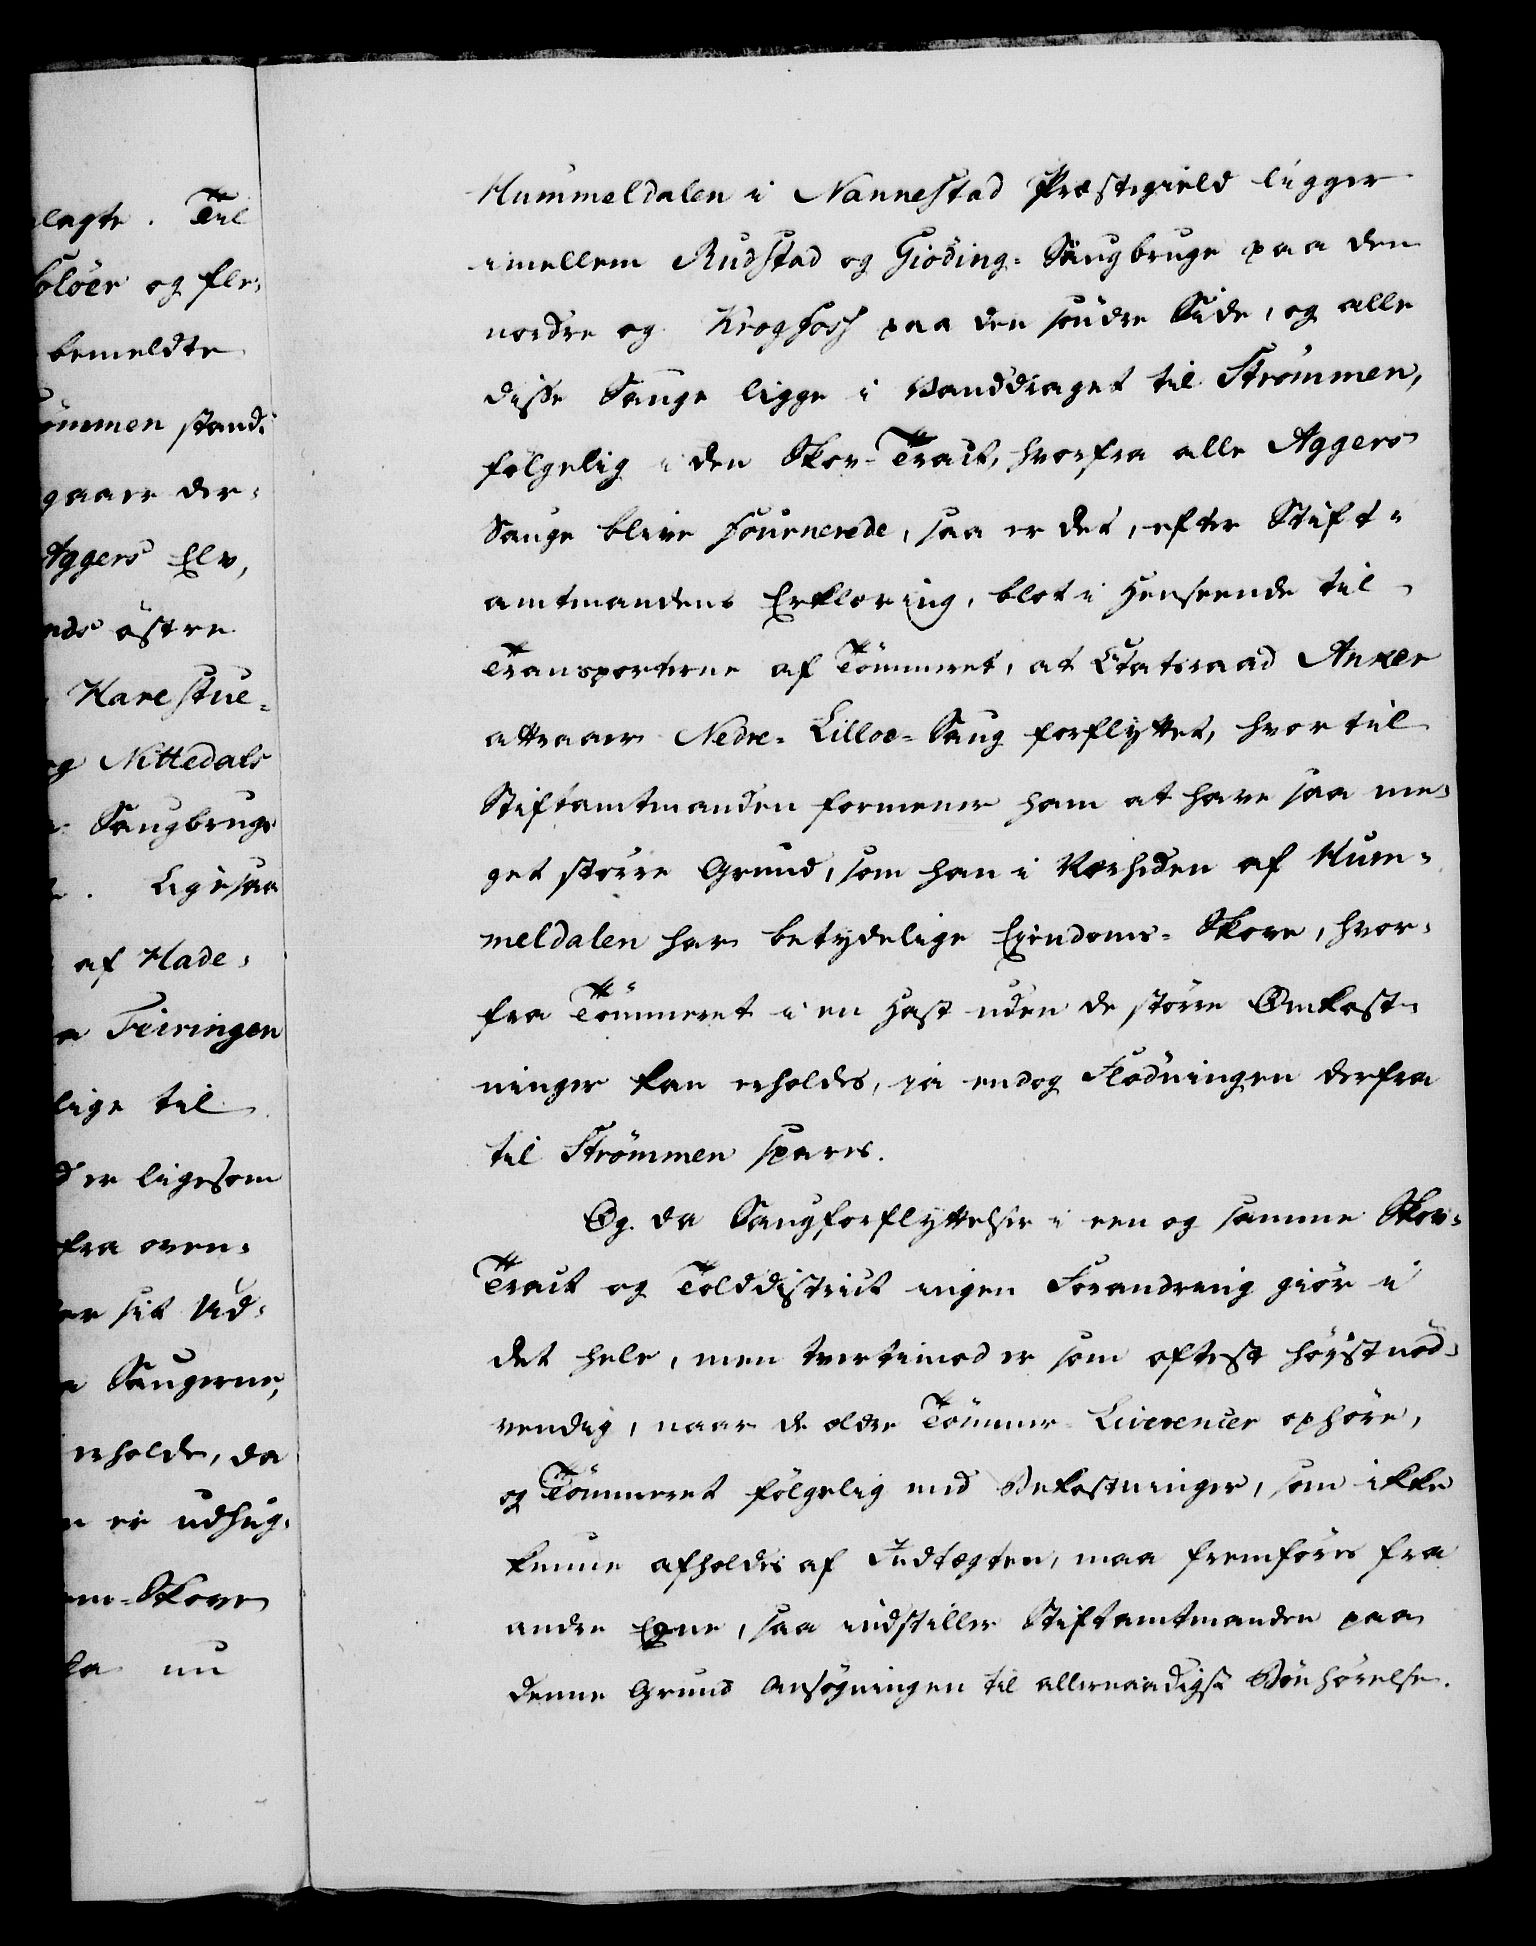 lagte. Til
soløer og fle-
bemeldte
ömmen standi
gaaer der-
Aggers Elv,
nds östre
Harestue-
og Nittedals
Saugbrugs
. Ligesaa
af Hade-
a Feiringen
lige til
d er ligesom
fra oven-
er sit Ud-
a Saugerne,
erholde, da
n er udhug-
em-Skove
ka nu
Hummeldalen i Nannestad Præstegield ligger
imellem Rudstad og Giöding-Saugbruge paa den
nordre og Krogfoss paa den söndre Side, og alle
disse Sauge ligge i Vanddraget til Strömmen,
fölgelig i den Skov-Tract, hvorfra alle Aggers
Sauge blive fournerede, saa er det, efter Stift-
amtmandens Erklæring, blot i Henseende til
Transporterne af Tömmeret, at Etatsraad Anker
attraaer Nedre-Lilloe-Saug forflyttet, hvortil
Stiftamtmanden formener ham at have saa me-
get större Grund, som han i Nærheden af Hum-
meldalen har betydelige Eiendoms-Skove, hvor-
fra Tömmeret i en Hast uden de större Omkost-
ninger kan erholdes, ja endog Flödningen derfra
til Strömmen spares.
Og da Saugforflyttelser i een og samme Skov-
Tract og Tolddistrict ingen Forandring giör i
det hele, men tvertimod er som oftest höistnöd-
vendig, naar de ældre Tömmer-Liverencer ophöre,
og Tömmeret fölgelig med Bekostninger, som ikke
kunne afholdes af Indtægten, maa fremföres fra
andre Egne, saa indstiller Stiftamtmanden paa
denne Grund Ansögningen til allernaadigst Bönhörelse.